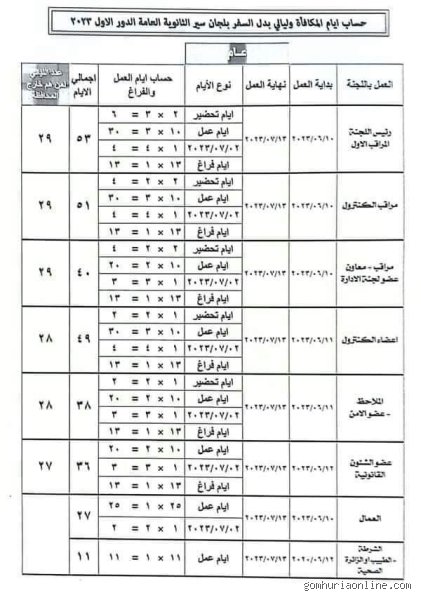 حساب ايام المكافأة وليالي بدل السفر بلجان سير الثانوية العامة الدور الاول ٢٠٢٣
عام
العمل باللجنة بداية العمل نهاية العمل نوع الأيام حساب ايام العمل والفراغ اجمالي الايام عدد الليالي لمن هم خارج المحافظة
رئيس اللجنة المراقب الاول ٢٠٢٣/٠٦/١٠ ٢٠٢٣/٠٧/١٣ ٥٣ ٢٩
ايام تحضير ٢ × ٣ = ٦
ايام عمل ١٠ × ٣ = ٣٠
٢٠٢٣/٠٧/٠٢ ١ × ٤ = ٤
ايام فراغ ١٣ × ١ = ١٣
مراقب الكنترول ٢٠٢٣/٠٦/١٠ ٢٠٢٣/٠٧/١٣ ٥١ ٢٩
ايام تحضير ٢ × ٢ = ٤
ايام عمل ١٠ × ٣ = ٣٠
٢٠٢٣/٠٧/٠٢ ١ × ٤ = ٤
ايام فراغ ١٣ × ١ = ١٣
مراقب - معاون عضو لجنة الادارة ٢٠٢٣/٠٦/١٠ ٢٠٢٣/٠٧/١٣ ٤٠ ٢٩
ايام تحضير ٢ × ٢ = ٤
ايام عمل ١٠ × ٢ = ٢٠
٢٠٢٣/٠٧/٠٢ ١ × ٣ = ٣
ايام فراغ ١٣ × ١ = ١٣
اعضاء الكنترول ٢٠٢٣/٠٦/١١ ٢٠٢٣/٠٧/١٣ ٤٩ ٢٨
ايام تحضير ١ × ٢ = ٢
ايام عمل ١٠ × ٣ = ٣٠
٢٠٢٣/٠٧/٠٢ ١ × ٤ = ٤
ايام فراغ ١٣ × ١ = ١٣
الملاحظ - عضو الامن ٢٠٢٣/٠٦/١١ ٢٠٢٣/٠٧/١٣ ٣٨ ٢٨
ايام تحضير ١ × ٢ = ٢
ايام عمل ١٠ × ٢ = ٢٠
٢٠٢٣/٠٧/٠٢ ١ × ٣ = ٣
ايام فراغ ١٣ × ١ = ١٣
عضو الشئون القانونية ٢٠٢٣/٠٦/١٢ ٢٠٢٣/٠٧/١٣ ٣٦ ٢٧
ايام عمل ١٠ × ٢ = ٢٠
٢٠٢٣/٠٧/٠٢ ١ × ٣ = ٣
ايام فراغ ١٣ × ١ = ١٣
العمال ٢٠٢٣/٠٦/١٠ ٢٠٢٣/٠٧/١٣ ٢٧
ايام عمل ٢٥ × ١ = ٢٥
٢٠٢٣/٠٧/٠٢ ١ × ٢ = ٢
الشرطة - الطبيب او الزائرة الصحية ٢٠٢٠/٠٦/١٢ ٢٠٢٣/٠٧/١٣ ايام عمل ١١ × ١ = ١١ ١١
gomhuriaonline.com